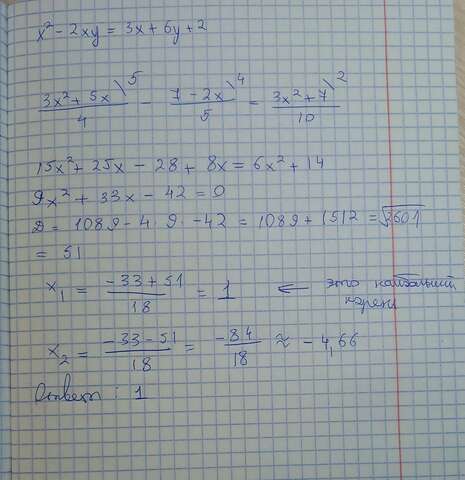 x² - 2xy = 3x + 6y + 2
(3x² + 5x)/4 \5 - (7 - 2x)/5 \4 = (3x² + 7)/10 \2
15x² + 25x - 28 + 8x = 6x² + 14
9x² + 33x - 42 = 0
D = 1089 - 4 · 9 · -42 = 1089 + 1512 = √2601
= 51
x₁ = (-33 + 51)/18 = 1 ← это наибольший корень
x₂ = (-33 - 51)/18 = -84/18 ≈ -4,66
Ответ: 1